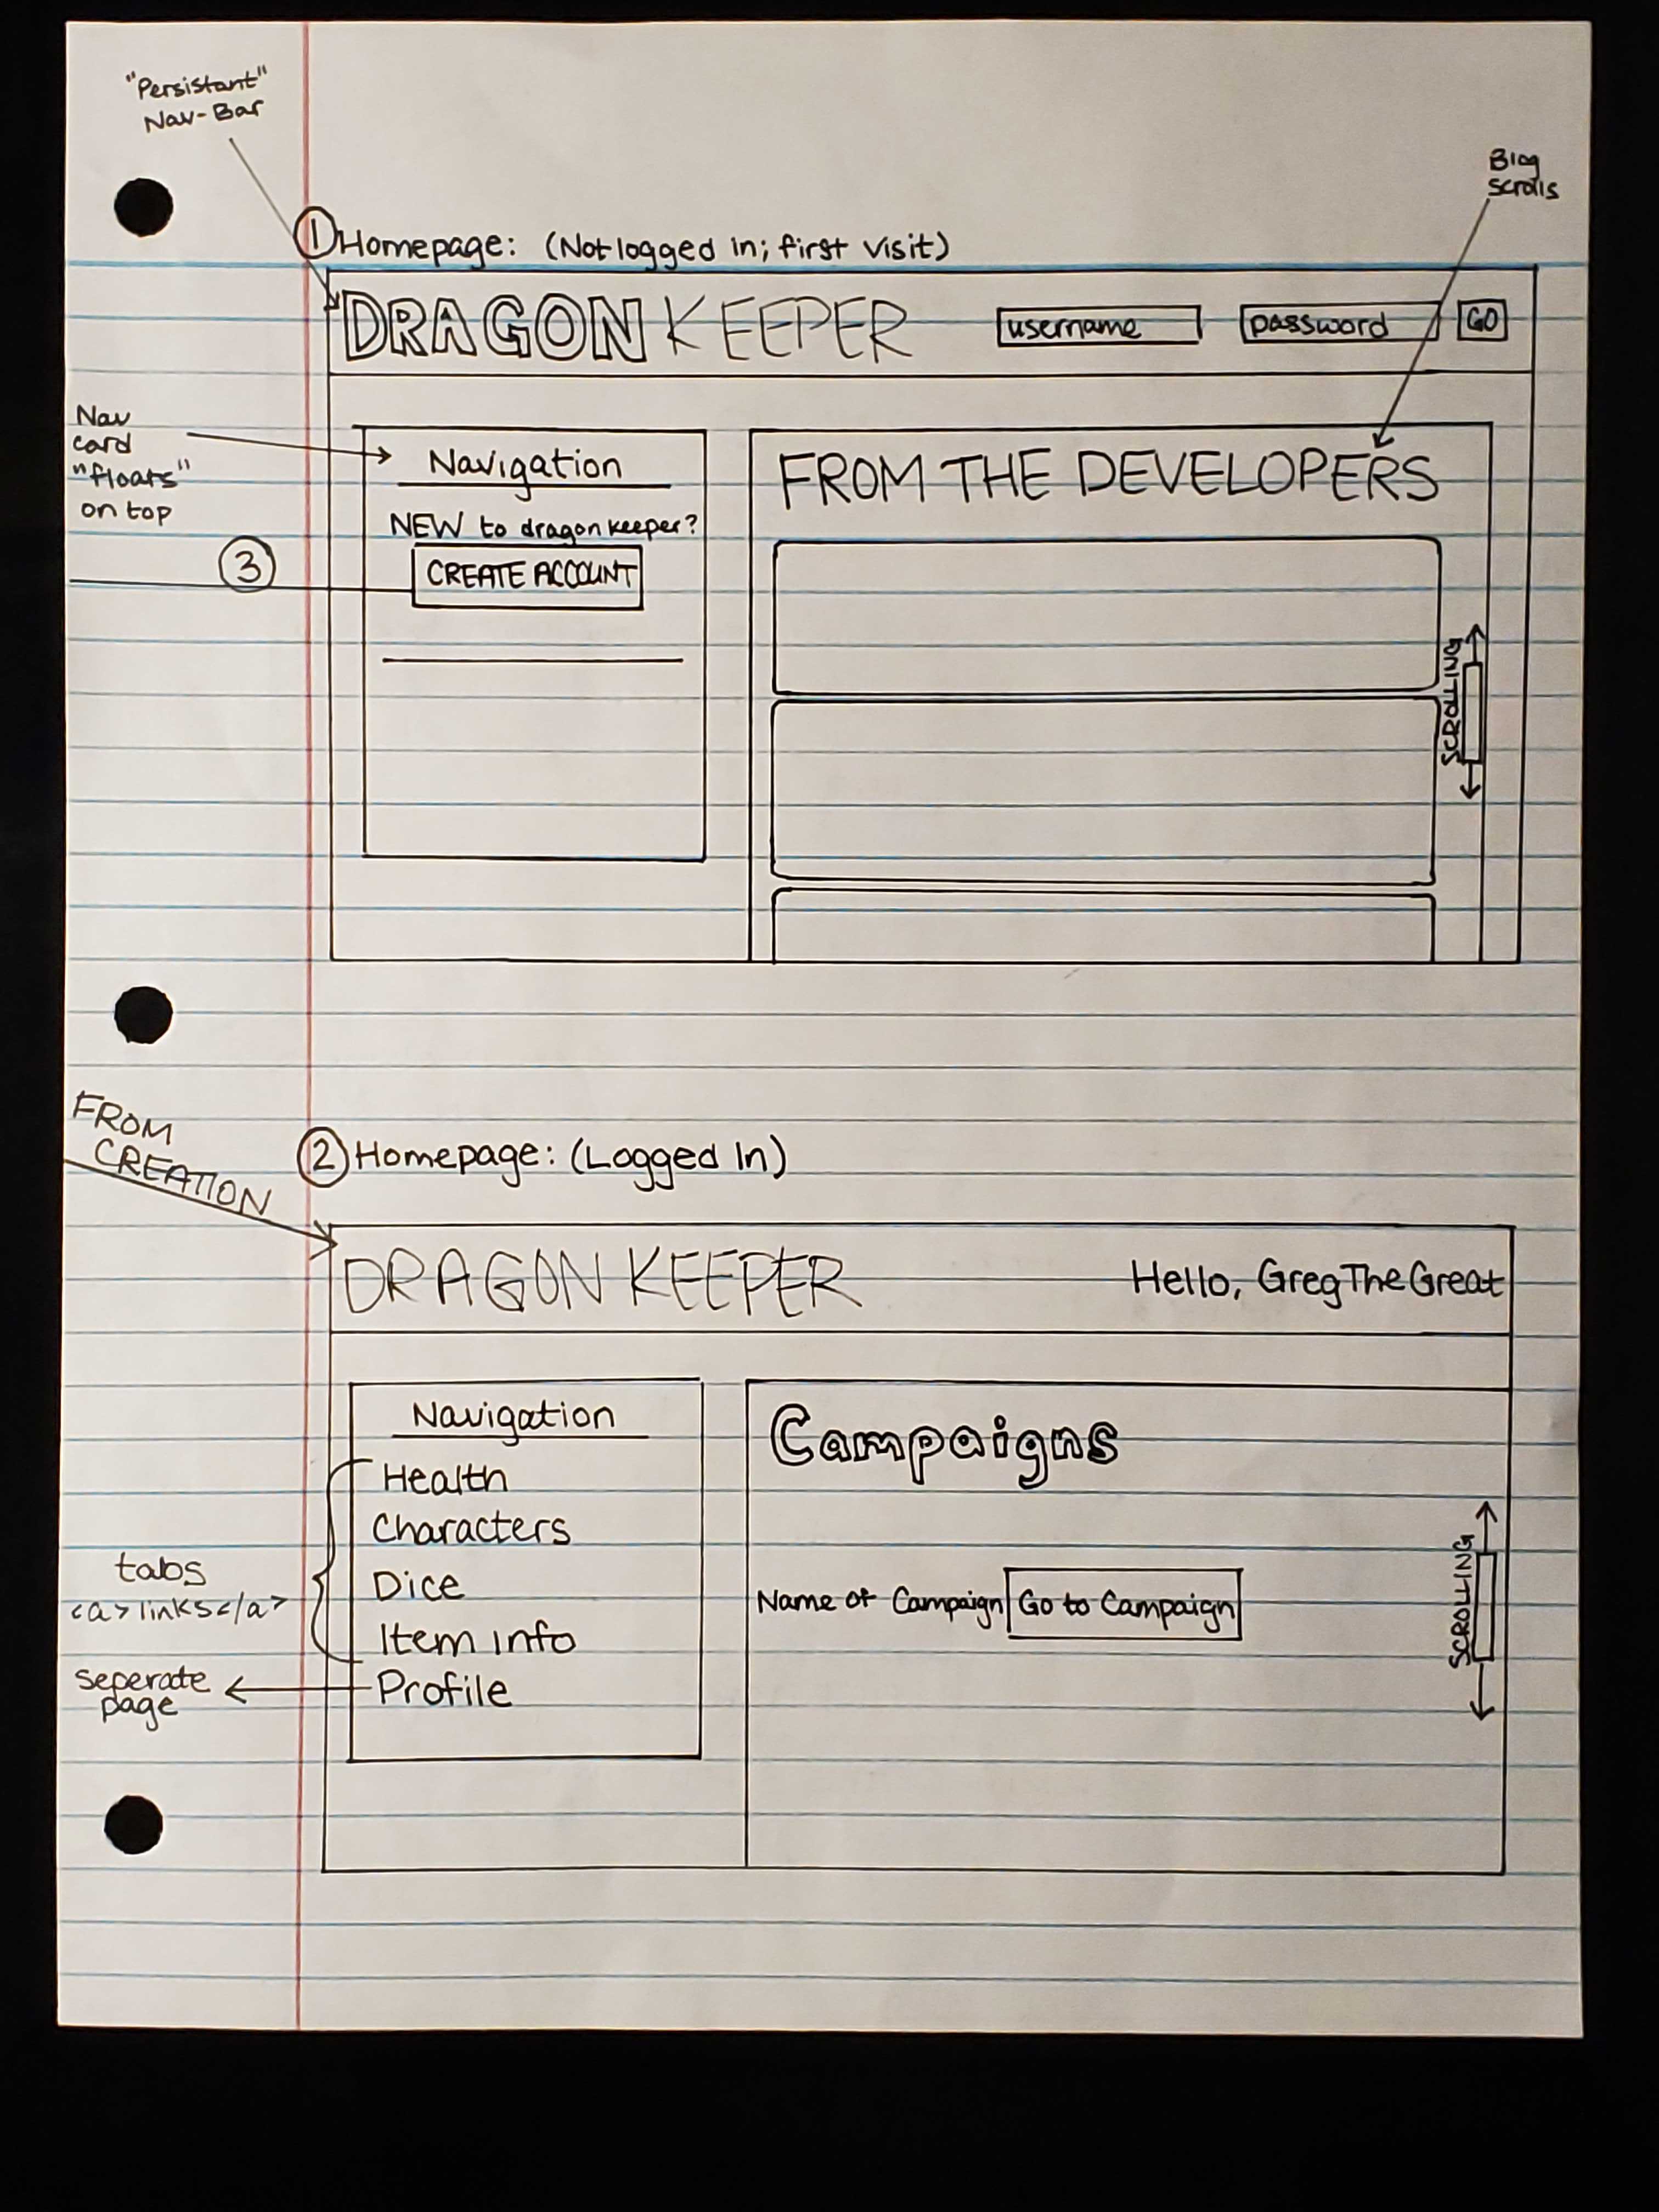 "Persistant"
Nav-Bar
Blog
scrolls
① Homepage: (Not logged in; first visit)
DRAGON KEEPER
username
password
GO
Nav
card
"floats"
on top
Navigation
NEW to dragon keeper?
③
CREATE ACCOUNT
FROM THE DEVELOPERS
SCROLLING
FROM
CREATION
② Homepage: (Logged In)
DRAGON KEEPER
Hello, GregTheGreat
Navigation
Health
Characters
Dice
Item info
Profile
tabs
<a> links </a>
seperate
page
Campaigns
Name of Campaign
Go to Campaign
SCROLLING